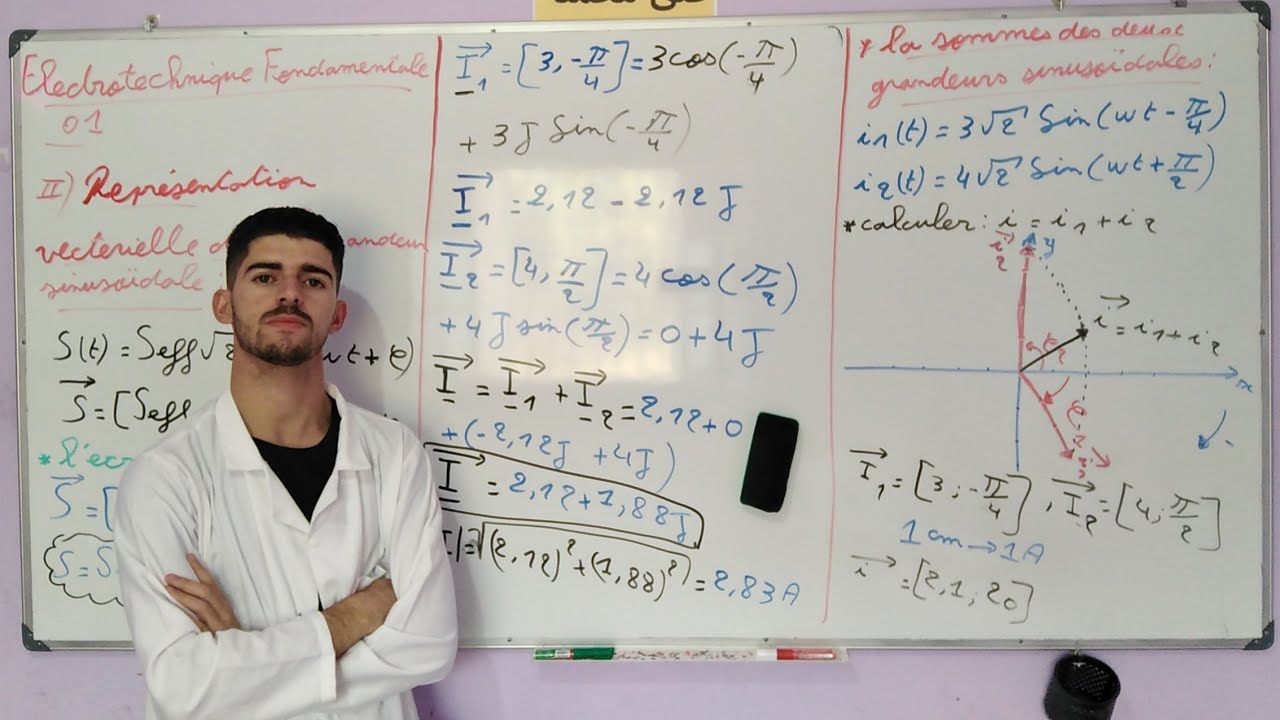 Electrotechnique Fondamentale
01
II) Représentation
vectorielle
sinusoïdale
S(t) = Seff√2 wt + φ)
S⃗ = [Seff
* l'ecr
S⃗ = [
S = S
I⃗₁ = [3, -π/4] = 3cos(-π/4)
+ 3J Sin(-π/4)
I⃗₁ = 2,12 - 2,12J
I⃗₂ = [4, π/2] = 4 cos(π/2)
+ 4J sin(π/2) = 0 + 4J
I⃗ = I⃗₁ + I⃗₂ = 2,12 + 0
+ (-2,12J + 4J)
I⃗ = 2,12 + 1,88J
I| = √(2,12)² + (1,88)²) = 2,83A
* la sommes des deux
grandeurs sinusoïdales:
i₁(t) = 3√2 Sin(wt - π/4)
i₂(t) = 4√2 Sin(wt + π/2)
* calculer: i = i₁ + i₂
i⃗₂ y
i⃗ = i₁ + i₂
x
i⃗₁
I⃗₁ = [3; -π/4], I⃗₂ = [4; π/2]
1cm → 1A
i⃗ = [2,1; 20]